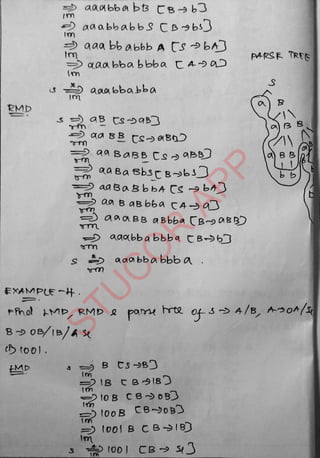 ⇒lm aaabbabB [B→b]
⇒lm aaabbabbS [B→bS]
⇒lm aaabbabbbA [S→bA]
⇒lm aaabbabbba [A→a]
S ⇒*lm aaabbabba
PARSE TREE
S
a B
a B B
a B B
b b
RMD
S ⇒rm aB [S→aB]
⇒rm aaBB [S→aBB]
⇒rm aaBaBB [S→aBB]
⇒rm aaBaBbS [B→bS]
⇒rm aaBaBbbA [S→bA]
⇒rm aaBaBbba [A→a]
⇒rm aaaBBaBbba [B→aBB]
⇒rm aaabbabbba [B→b]
S ⇒*rm aaabbabbba.
EXAMPLE-4.
Find LMD, RMD & parse tree of S→A/B, A→0A/ε
B→0B/1B/ε
(i) 1001.
LMD
S ⇒lm B [S→B]
⇒lm 1B [B→1B]
⇒lm 10B [B→0B]
⇒lm 100B [B→0B]
⇒lm 1001B [B→1B]
S ⇒*lm 1001 [B→ε]
STUCOR APP